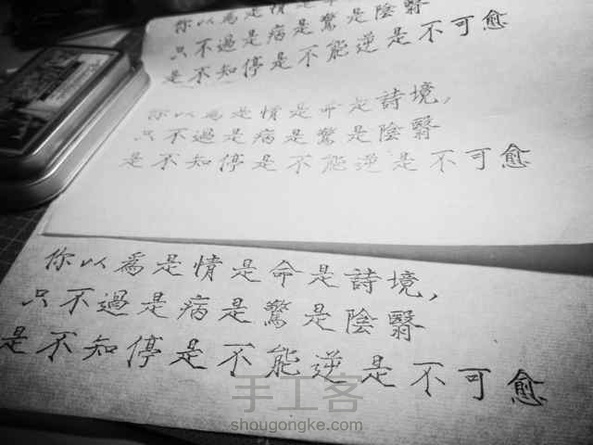 你以為是情是
只不過是病是驚是陰翳
是不知停是不能逆是不可愈
你以為是情是命是詩境,
只不過是病是驚是陰翳
是不知停是不能逆是不可愈
你以為是情是命是詩境,
只不過是病是驚是陰翳
是不知停是不能逆是不可愈
手工客
shougongke.com